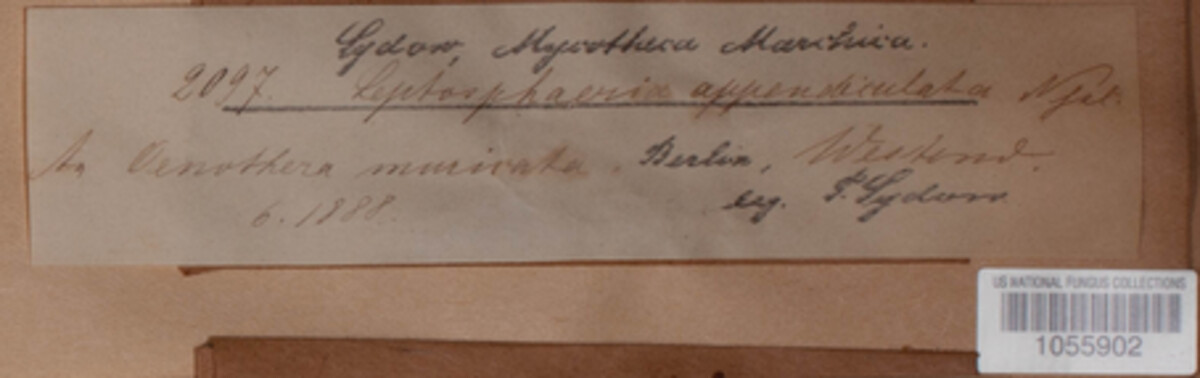 Sydow, Mycotheca Marchica.
2097. Leptosphaeria appendiculata
An Oenothera muricata. Berlin, Westend.
6. 1888. leg. P. Sydow
US NATIONAL FUNGUS COLLECTIONS
1055902